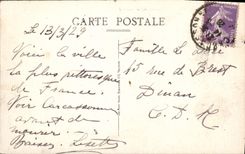 CARTE POSTALE
Le 13/3/29
Voici la ville
la plus pittoresque
de France.
Voir Carcassonne
avant de
mourir.
Baisers. Lisette
Famille Le
15 rue de Brest
Dinan
C. D. N